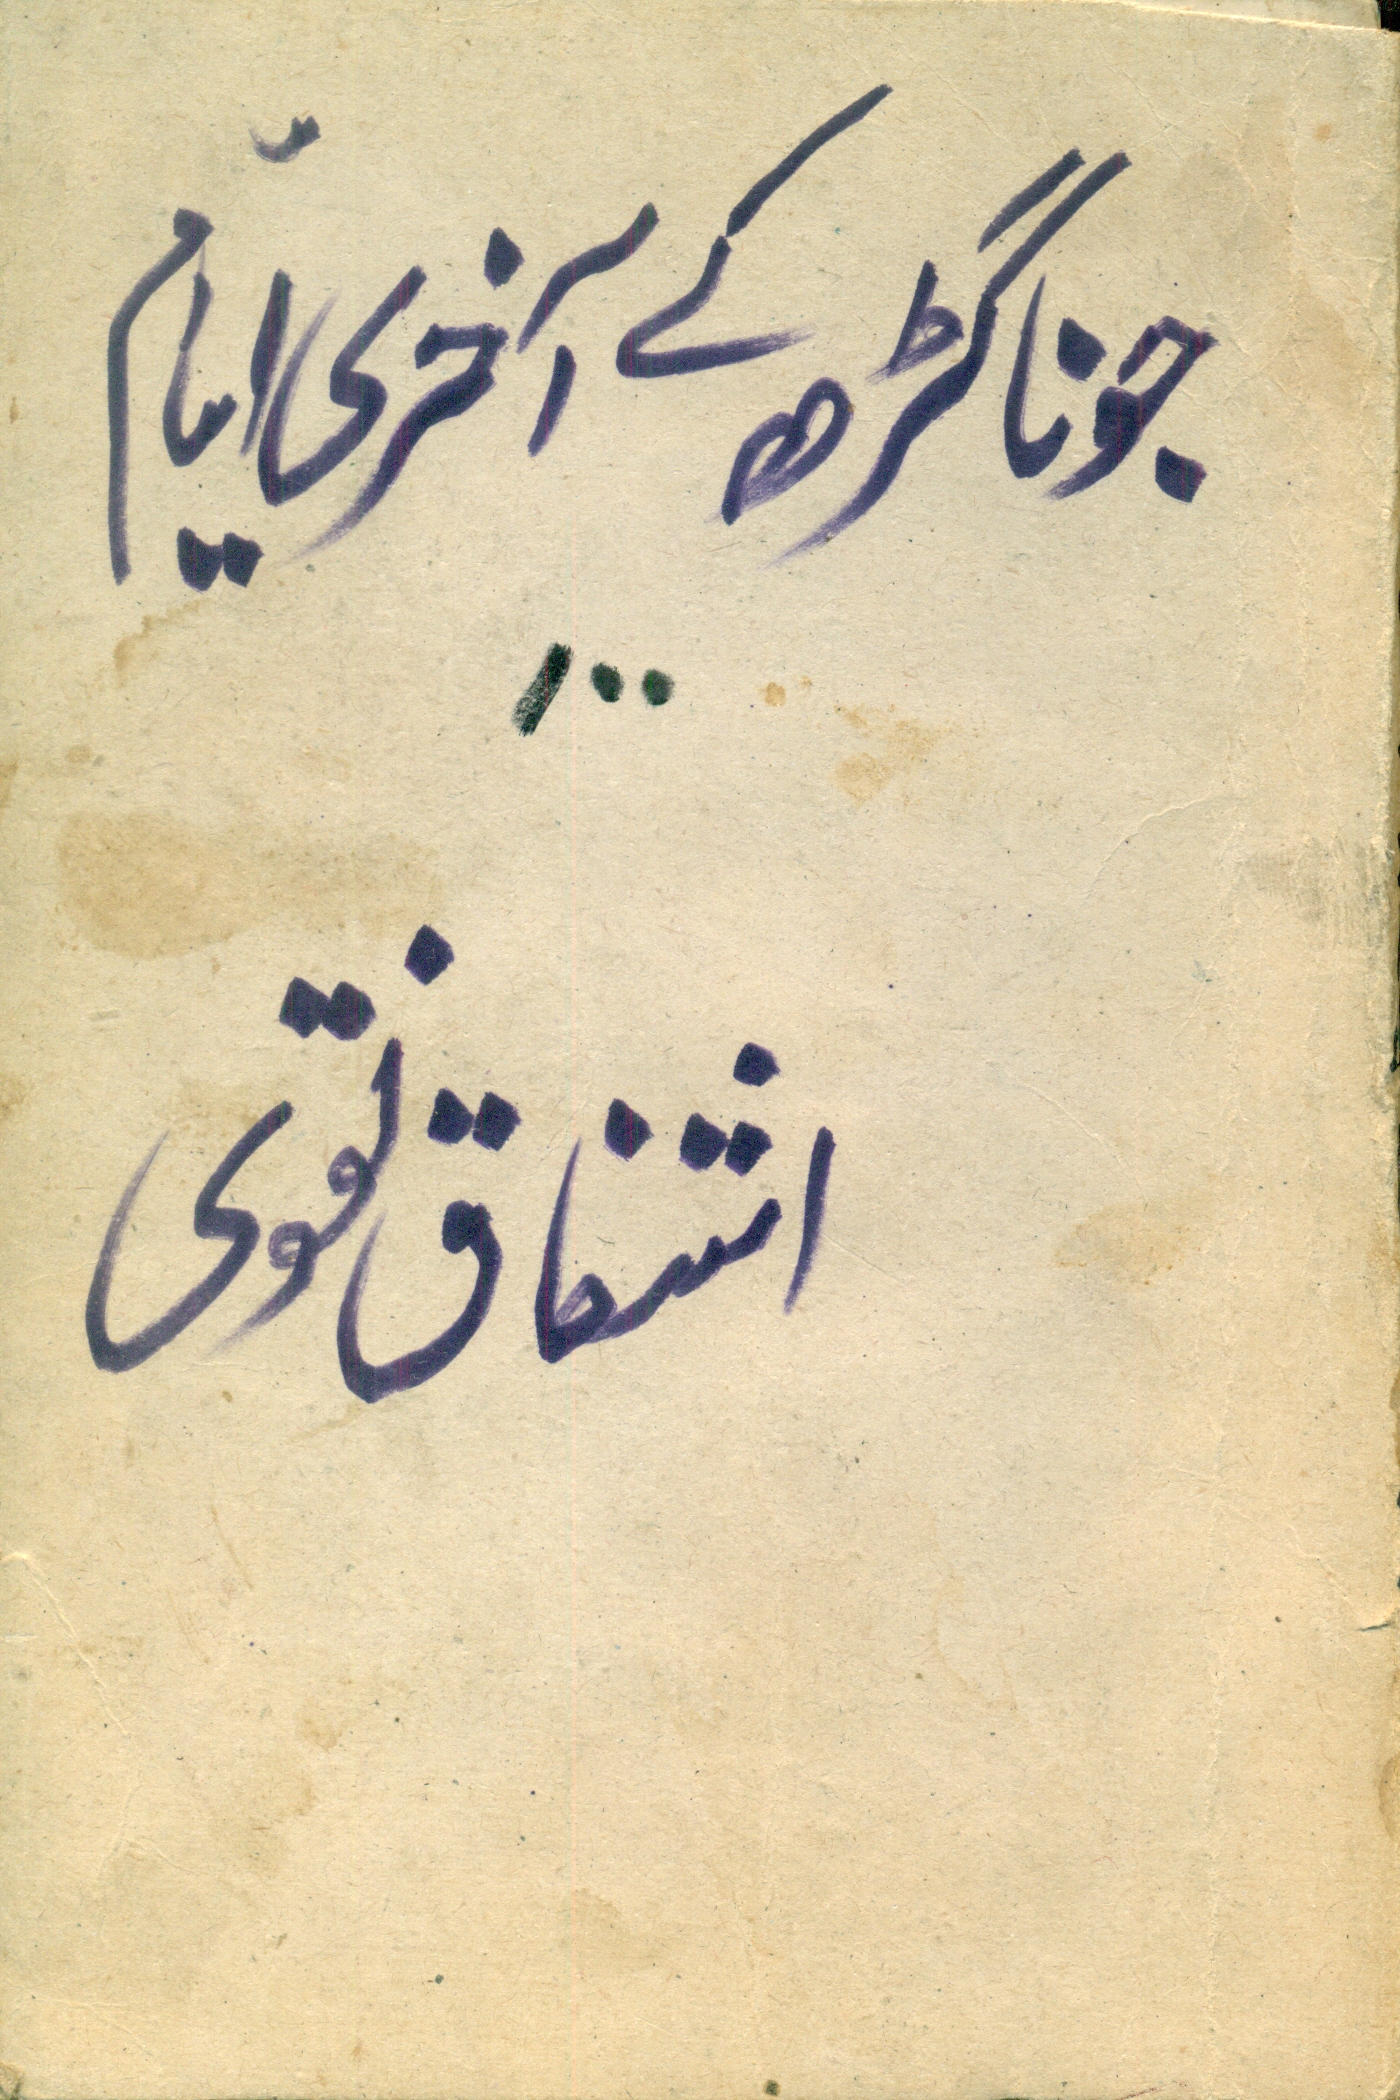 جونا گڑھ کے آخری ایّام
۱۰۰
اشفاق نقوی